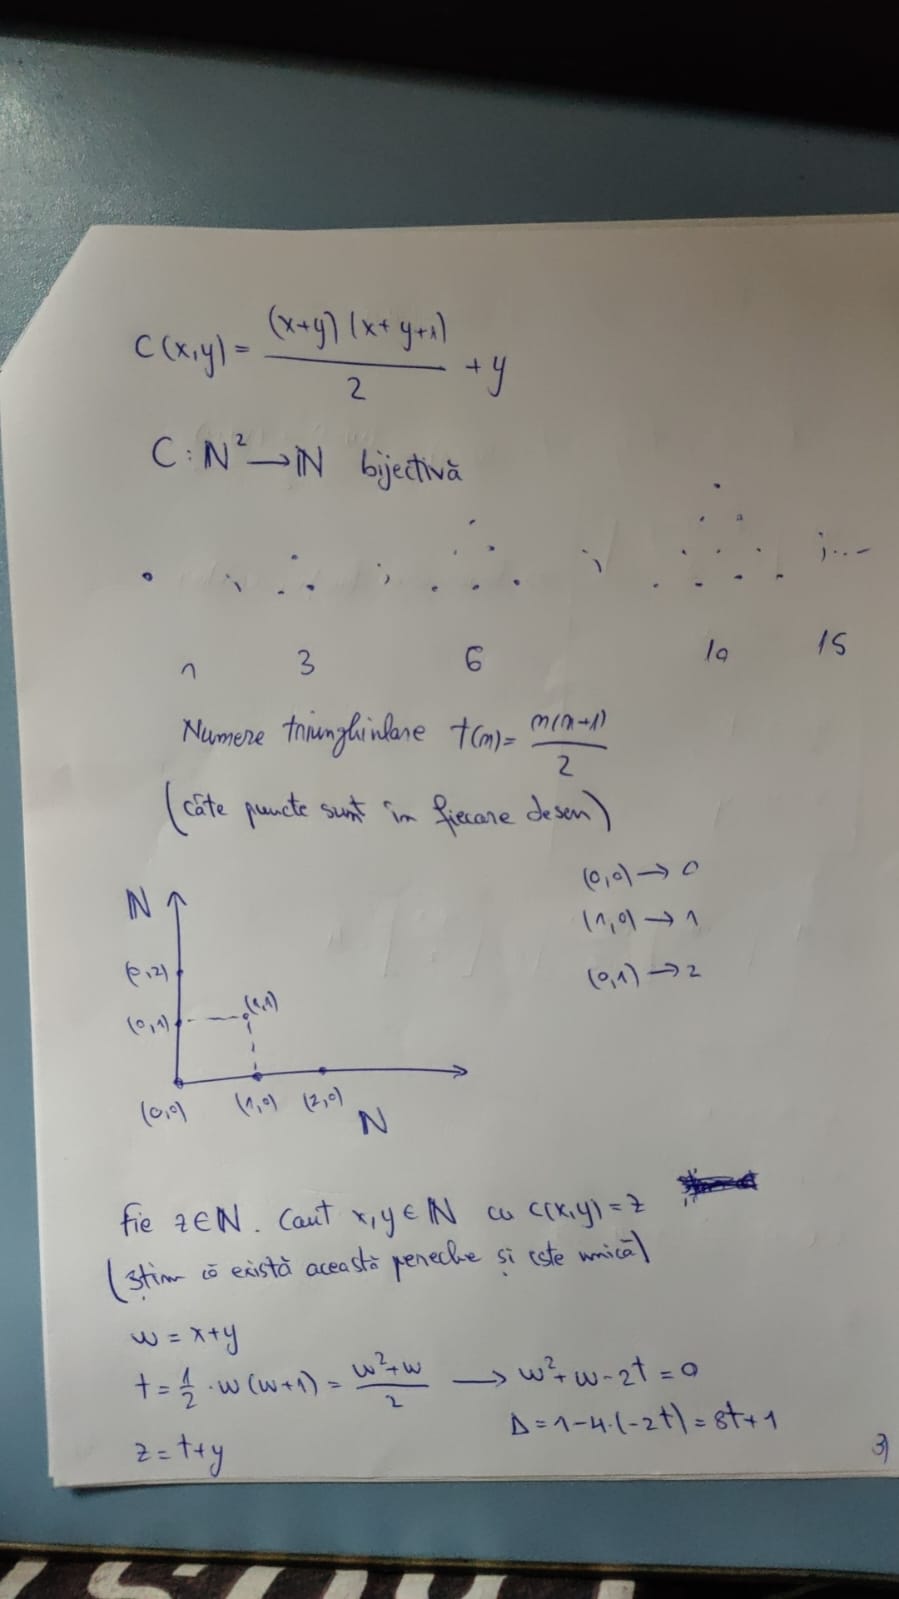 C(x,y) = (x+y)(x+y+1)/2 + y
C : ℕ² → ℕ bijectivă
1 3 6 10 15
Numere triunghiulare t(n) = n(n+1)/2
(câte puncte sunt în fiecare desen)
(0,0) → 0
(1,0) → 1
(0,1) → 2
ℕ
(0,2)
(0,1) (1,1)
(0,0) (1,0) (2,0)
ℕ
Fie z∈ℕ. Caut x,y∈ℕ cu C(x,y)=z
(știm că există această pereche și este unică)
w = x+y
t = 1/2 · w(w+1) = (w²+w)/2 → w²+w-2t = 0
Δ = 1-4·(-2t) = 8t+1
z = t+y
3)